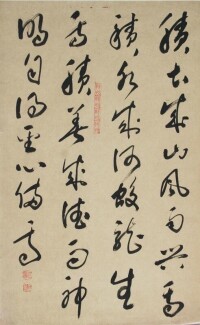 積土成山風雨興焉
積水成淵蛟龍生
焉積善成德而神
明自得聖心備焉